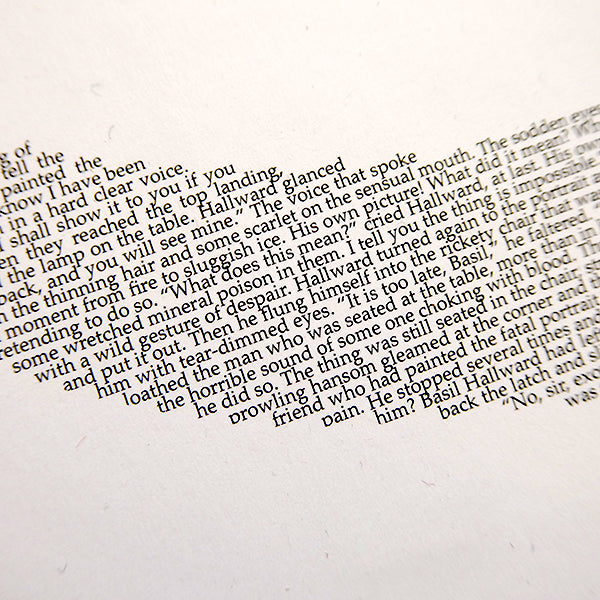 g of
tell the
painted the
know I have been
in a hard clear voice.
I shall show it to you if you
en they reached the top landing,
the lamp on the table. Hallward glanced
back, and you will see mine.” The voice that spoke
n the thinning hair and some scarlet on the sensual mouth. The sodden eyes
moment from fire to sluggish ice. His own picture! What did it mean? Wh
retending to do so. “What does this mean?” cried Hallward, at last. His own
some wretched mineral poison in them. I tell you the thing is impossible
with a wild gesture of despair. Hallward turned again to the portrait
and put it out. Then he flung himself into the rickety chair that wa
him with tear-dimmed eyes. “It is too late, Basil,” he faltered.
loathed the man who was seated at the table, more than in
the horrible sound of some one choking with blood. Th
he did so. The thing was still seated in the chair,
prowling hansom gleamed at the corner and
friend who had painted the fatal portrait
pain. He stopped several times an
him? Basil Hallward had le
back the latch and sl
“No, sir, exc
was